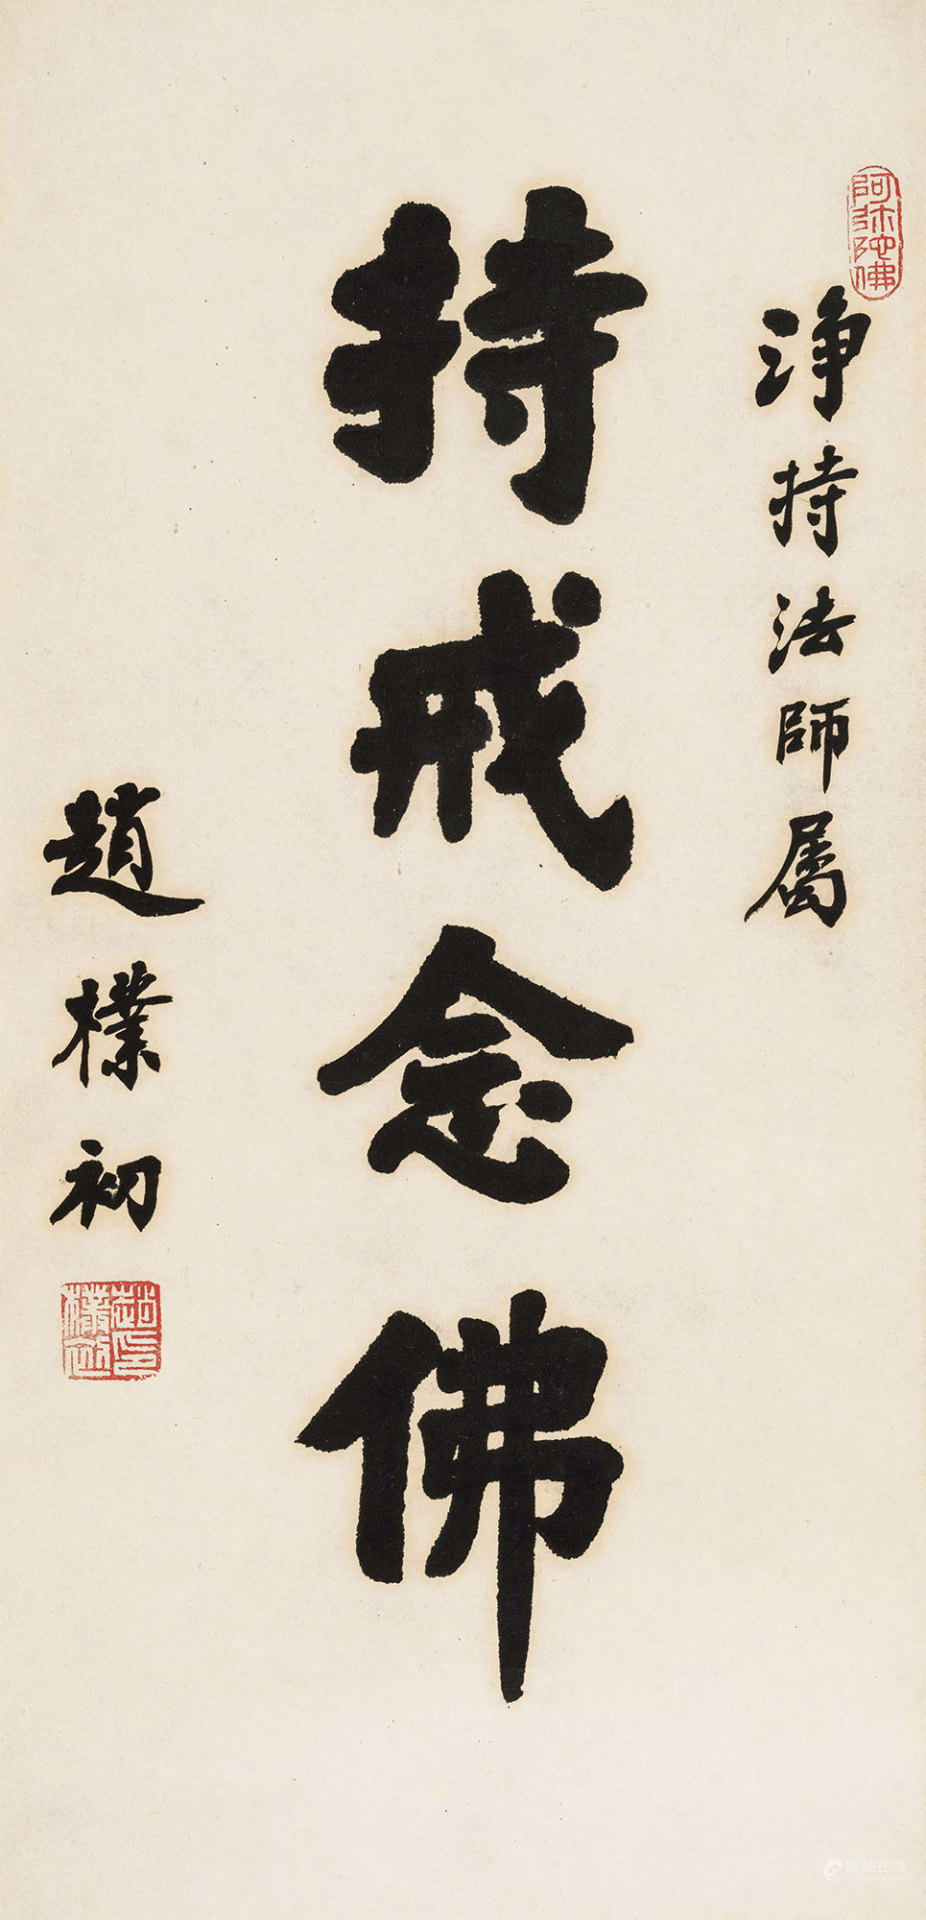 阿弥陀佛
淨持法師属
持戒念佛
趙樸初
趙樸初印